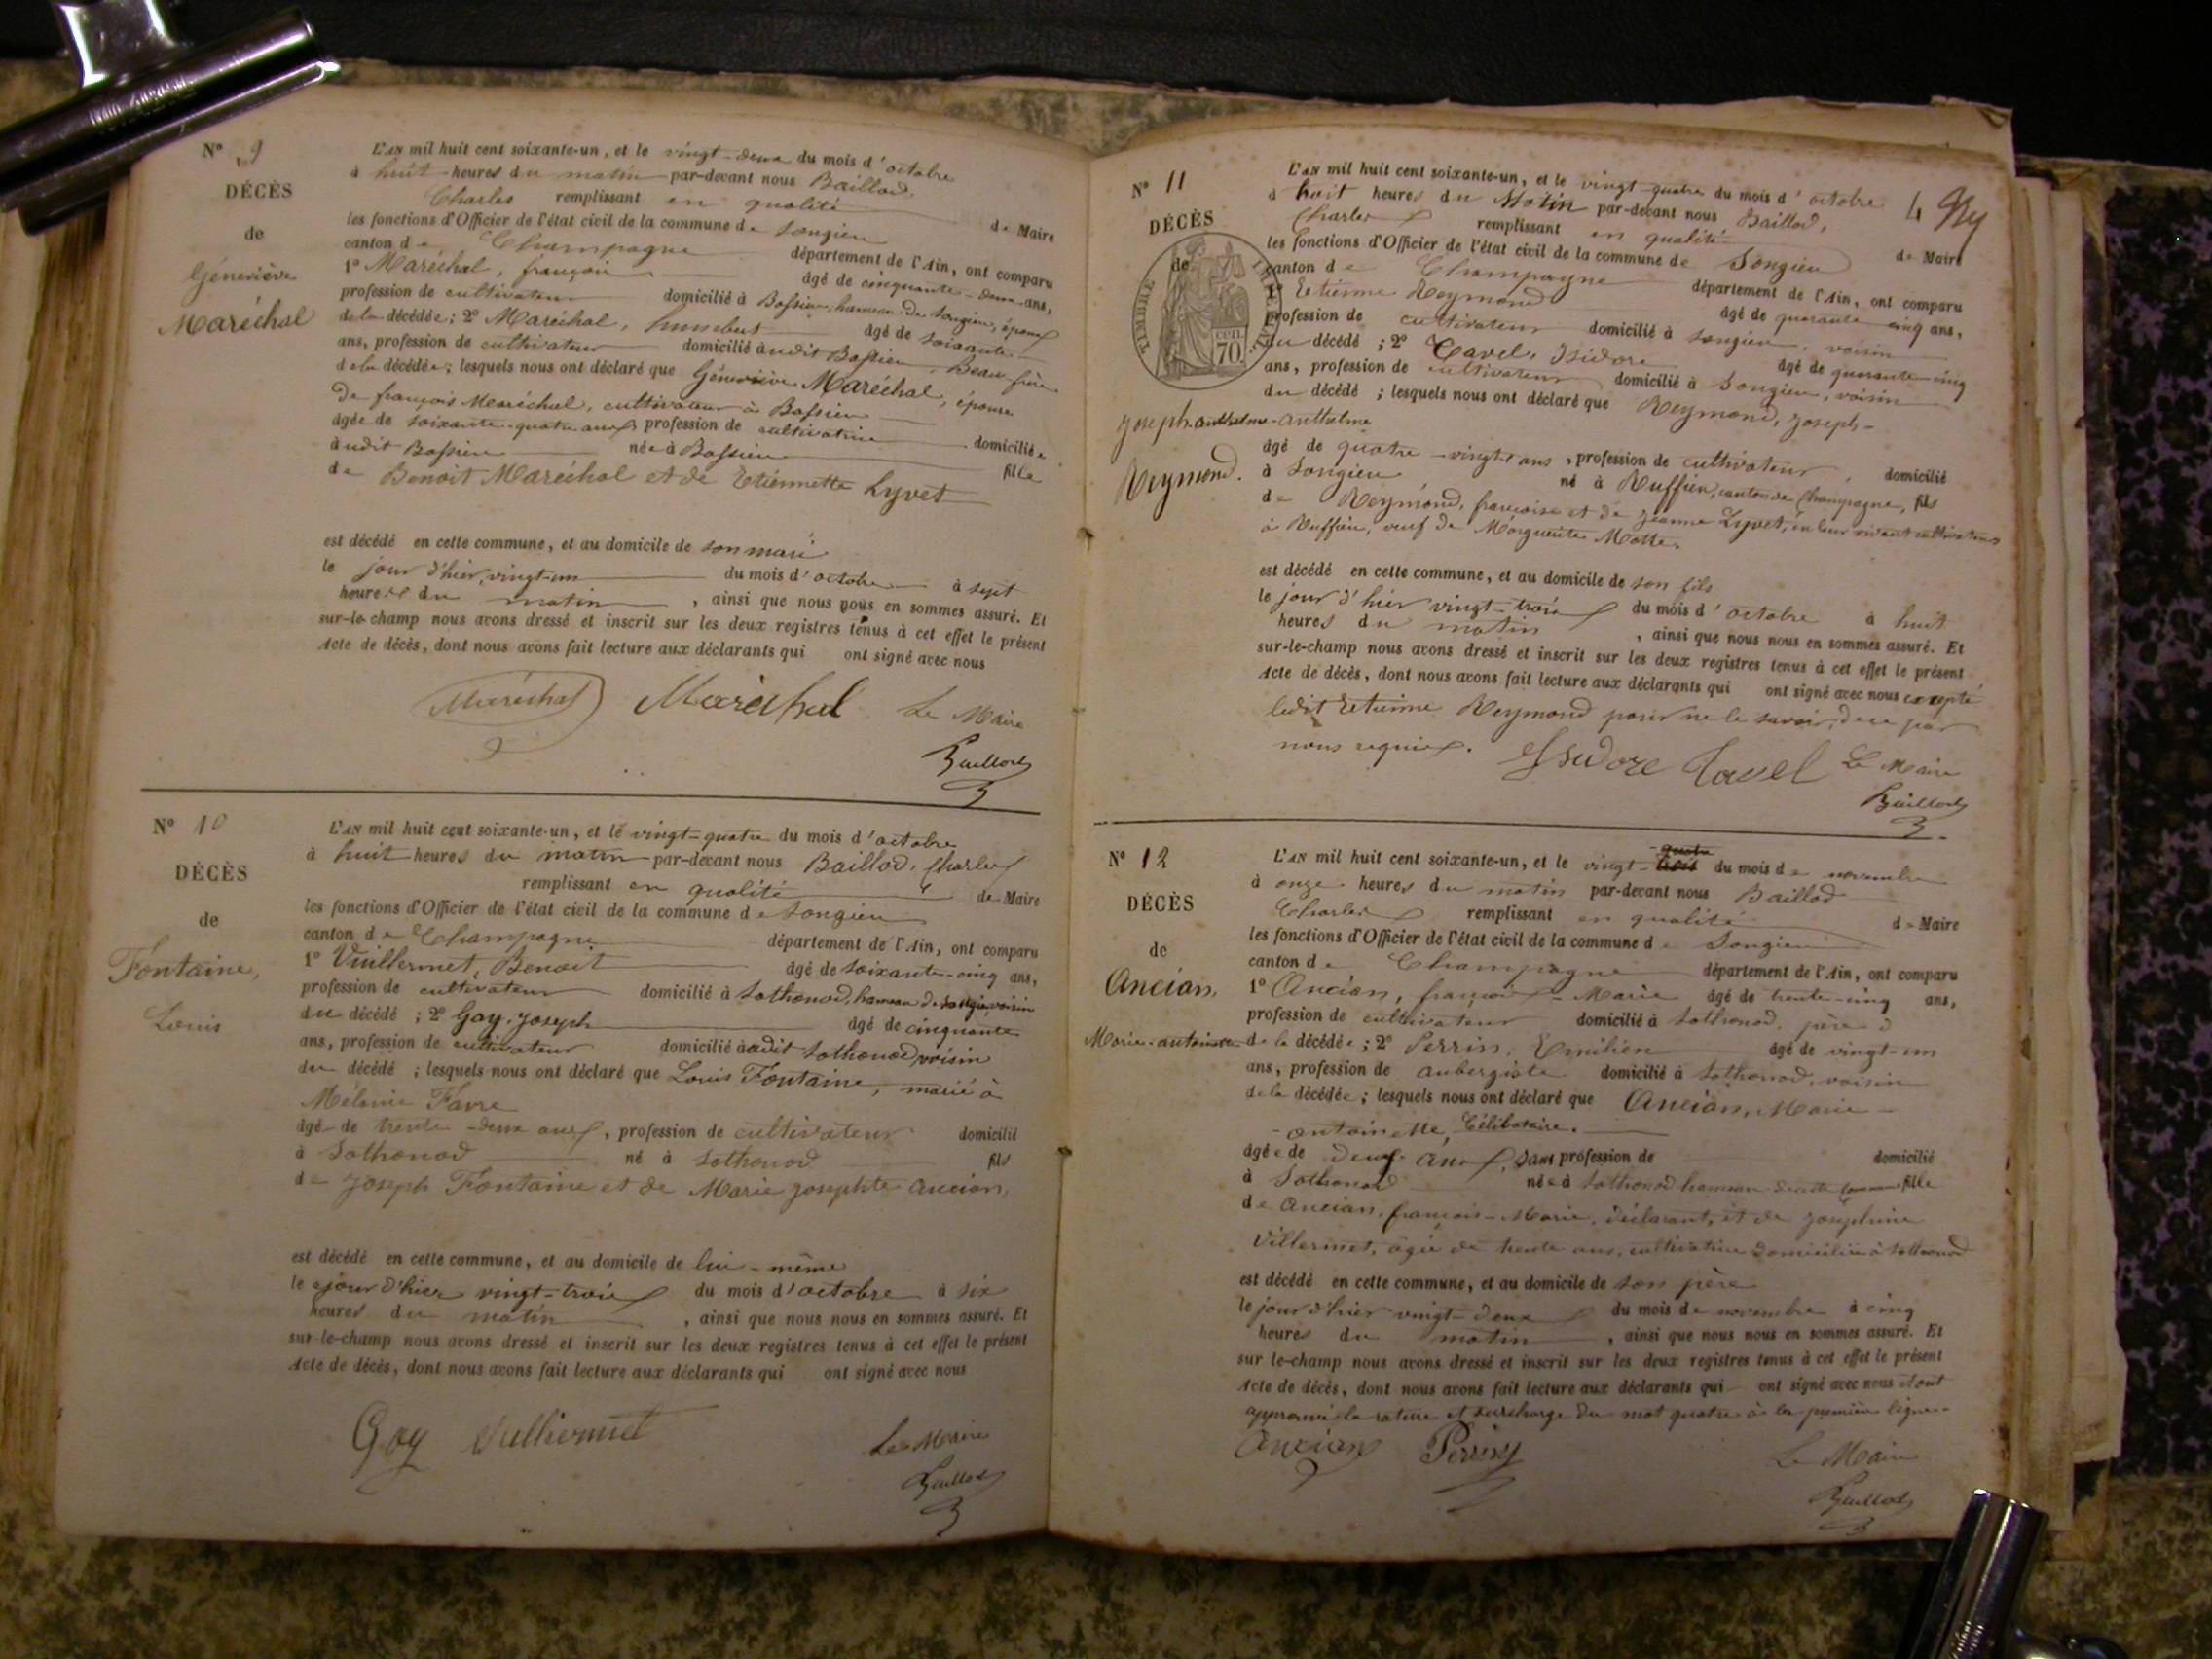 N° 9
DÉCÈS
de
Géneviève
Maréchal
L'AN mil huit cent soixante-un, et le vingt-deux du mois d'octobre
à huit heures du matin par-devant nous Baillod,
Charles remplissant en qualité de Maire
les fonctions d'Officier de l'état civil de la commune de Songieu
canton de Champagne département de l'Ain, ont comparu
1° Maréchal, françois âgé de cinquante-deux ans,
profession de cultivateur domicilié à Bassieu, hameau de Songieu, époux
de la décédée ; 2° Maréchal, humbert âgé de soixante
ans, profession de cultivateur domicilié audit Bassieu, Beau frère
de la décédée ; lesquels nous ont déclaré que Géneviève Maréchal, épouse
de françois Maréchal, cultivateur à Bassieu
âgée de soixante-quatre ans, profession de cultivatrice domiciliée
audit Bassieu née à Bassieu fille
de Benoit Maréchal et de Etiennette Lyvet
est décédé en cette commune, et au domicile de son mari
le jour d'hier, vingt-un du mois d'octobre à sept
heures du matin, ainsi que nous nous en sommes assuré. Et
sur-le-champ nous avons dressé et inscrit sur les deux registres tenus à cet effet le présent
Acte de décès, dont nous avons fait lecture aux déclarants qui ont signé avec nous
Maréchal Maréchal Le Maire
Baillod
N° 10
DÉCÈS
de
Fontaine,
Louis
L'AN mil huit cent soixante-un, et le vingt-quatre du mois d'octobre
à huit heures du matin par-devant nous Baillod, Charles
remplissant en qualité de Maire
les fonctions d'Officier de l'état civil de la commune de Songieu
canton de Champagne département de l'Ain, ont comparu
1° Vuillermet, Benoit âgé de soixante-cinq ans,
profession de cultivateur domicilié à Sothonod, hameau de Songieu, voisin
du décédé ; 2° Gay, Joseph âgé de cinquante
ans, profession de cultivateur domicilié audit Sothonod, voisin
du décédé ; lesquels nous ont déclaré que Louis Fontaine, marié à
Mélanie Favre
âgé de trente-deux ans, profession de cultivateur domicilié
à Sothonod né à Sothonod fils
de Joseph Fontaine et de Marie Josephte Ancian,
est décédé en cette commune, et au domicile de lui-même
le jour d'hier vingt-trois du mois d'octobre à six
heures du matin, ainsi que nous nous en sommes assuré. Et
sur-le-champ nous avons dressé et inscrit sur les deux registres tenus à cet effet le présent
Acte de décès, dont nous avons fait lecture aux déclarants qui ont signé avec nous
Gay Vulliermet Le Maire
Baillod
N° 11
DÉCÈS
de
TIMBRE IMPÉRIAL
70 cen.
Joseph-anthelme
Reymond.
4
L'AN mil huit cent soixante-un, et le vingt-quatre du mois d'octobre
à huit heures du Matin par-devant nous Baillod,
Charles remplissant en qualité de Maire
les fonctions d'Officier de l'état civil de la commune de Songieu
canton de Champagne département de l'Ain, ont comparu
1° Etienne Reymond âgé de quarante cinq ans,
profession de cultivateur domicilié à Songieu, voisin
du décédé ; 2° Tavel, Isidore âgé de quarante-cinq
ans, profession de cultivateur domicilié à Songieu, voisin
du décédé ; lesquels nous ont déclaré que Reymond, Joseph-
-anthelme
âgé de quatre-vingts ans, profession de cultivateur, domicilié
à Songieu né à Ruffieu, canton de Champagne, fils
de Reymond, françoise et de Jeanne Lyvet, en leur vivant cultivateurs
à Ruffieu, veuf de Marguerite Motte.
est décédé en cette commune, et au domicile de son fils
le jour d'hier vingt-trois du mois d'octobre à huit
heures du matin, ainsi que nous nous en sommes assuré. Et
sur-le-champ nous avons dressé et inscrit sur les deux registres tenus à cet effet le présent
Acte de décès, dont nous avons fait lecture aux déclarants qui ont signé avec nous excepté
ledit Etienne Reymond pour ne le savoir, de ce par
nous requis. Issidore Tavel Le Maire
Baillod
N° 12
DÉCÈS
de
Ancian,
Marie-antoinette
L'AN mil huit cent soixante-un, et le vingt-quatre du mois de novembre
à onze heures du matin par-devant nous Baillod
Charles remplissant en qualité de Maire
les fonctions d'Officier de l'état civil de la commune de Songieu
canton de Champagne département de l'Ain, ont comparu
1° Ancian, françois-Marie âgé de trente-cinq ans,
profession de cultivateur domicilié à Sothonod, père
de la décédée ; 2° Perrin, Emilien âgé de vingt-un
ans, profession de aubergiste domicilié à Sothonod, voisin
de la décédée ; lesquels nous ont déclaré que Ancian, Marie-
-antoinette, Célibataire.
âgée de deux ans, sans profession de domicilié
à Sothonod née à Sothonod hameau de cette commune fille
de Ancian, françois-Marie, déclarant, et de Joséphine
Villermet, âgée de trente ans, cultivatrice domiciliée à Sothonod
est décédé en cette commune, et au domicile de son père
le jour d'hier vingt-deux du mois de novembre à cinq
heures du matin, ainsi que nous nous en sommes assuré. Et
sur le-champ nous avons dressé et inscrit sur les deux registres tenus à cet effet le présent
Acte de décès, dont nous avons fait lecture aux déclarants qui ont signé avec nous
approuvé la rature et surcharge du mot quatre à la première ligne.
Ancian Perrin Le Maire
Baillod